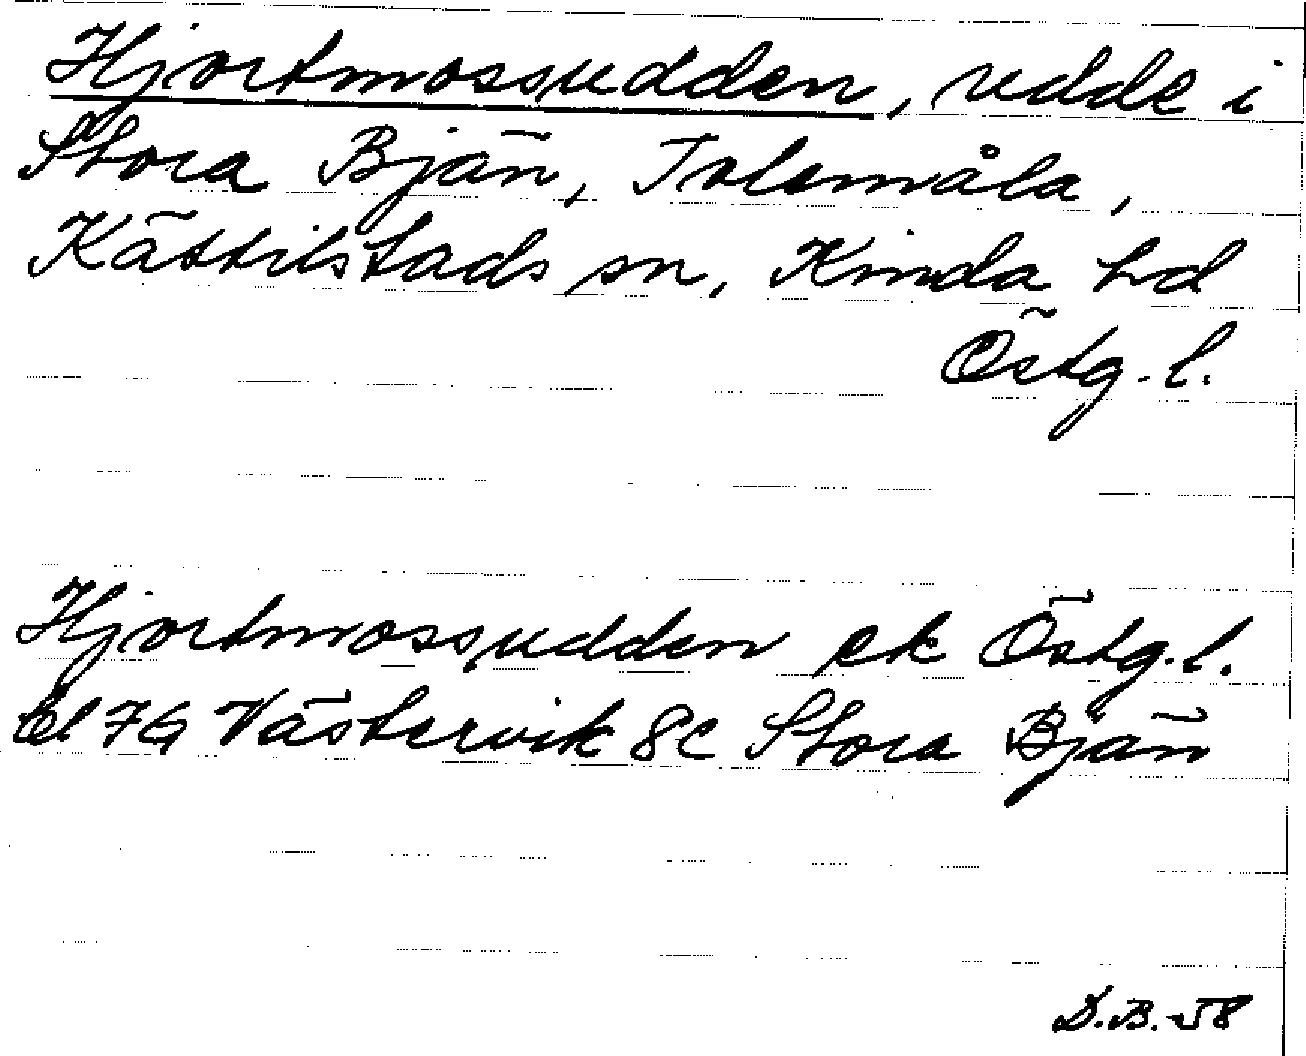 Hjortmossudden, udde i
Stora Bjän, Tolemåla,
Kättilstads sn, Kinda hd
Östg. l.
Hjortmossudden ek Östg. l.
bl 7G Västervik 8c Stora Bjän
D.B.-58